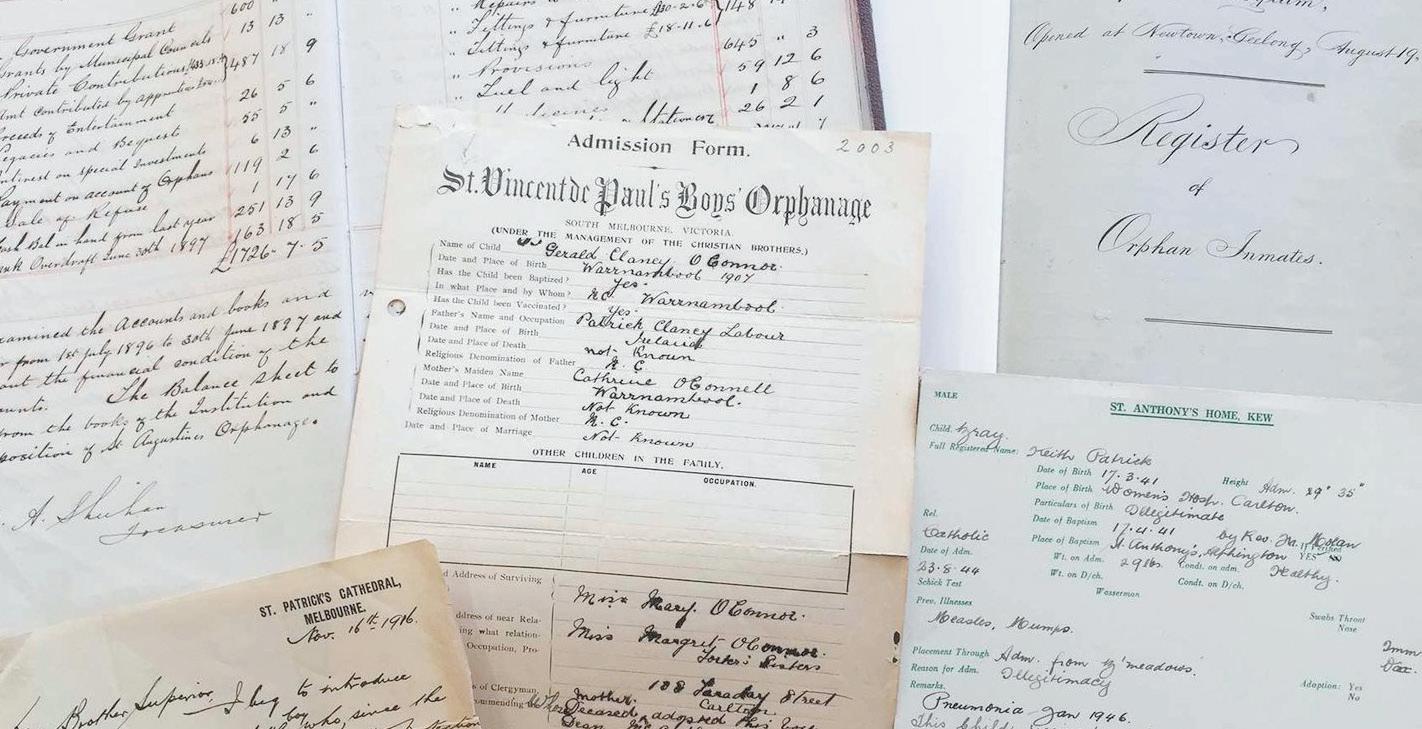 600
Government Grant 13 13 "
Grants by Municipal Councils
Private Contributions 487 18 9
contributed by apprentices
Proceeds of Entertainment 26 5 6
Legacies and Bequest 55 5 "
Interest on special Investments 6 13 "
Payment on account of Orphans 119 2 6
Sale of Refuse 1 17 6
Bal in hand from last year 251 13 9
Overdraft June 30th 1897 163 18 5
£1726-7-5
examined the Accounts and books and
from 1st July 1896 to 30th June 1897 and
out the financial condition of the
The Balance Sheet to
from the books of the Institution and
position of St Augustines Orphanage.
A. Shiehan
Treasurer
Fittings & furniture
Fittings & furniture £18-11-6
" Provisions 645 " 3
" Fuel and light 59 12 6
1 8 6
Stationery 26 2 1
Opened at Newtown, Geelong, August 19,
Register
of
Orphan Inmates.
Admission Form. 2003
St. Vincent de Paul's Boys' Orphanage
SOUTH MELBOURNE, VICTORIA.
(UNDER THE MANAGEMENT OF THE CHRISTIAN BROTHERS.)
Name of Child Gerald Claney O'Connor.
Date and Place of Birth Warrnambool 1907
Has the Child been Baptized? Yes.
In what Place and by Whom? R.C. Warrnambool.
Has the Child been Vaccinated? Yes.
Father's Name and Occupation Patrick Claney Labour
Date and Place of Birth Ireland
Date and Place of Death not Known
Religious Denomination of Father R.C.
Mother's Maiden Name Cathrine OConnell
Date and Place of Birth Warrnambool.
Date and Place of Death Not Known
Religious Denomination of Mother R.C.
Date and Place of Marriage Not Known
OTHER CHILDREN IN THE FAMILY.
NAME AGE OCCUPATION.
d Address of Surviving
Miss Mary. OConnor.
ddress of near Rela-
ing what relation- Miss Margret OConnor.
Occupation, Pro- Foster Sisters
108 Faraday Street
s of Clergyman, Carlton
mmending Mother.
Deceased adopted this boy
Dean
ST. PATRICK'S CATHEDRAL,
MELBOURNE.
Nov. 16th 1916.
Brother Superior, I beg to introduce
boy who, since the
MALE
ST. ANTHONY'S HOME, KEW
Child Gray.
Full Registered Name: Keith Patrick
Date of Birth 17.3.41 Height Adm. 29" 35"
Place of Birth Women's Hosp. Carlton.
Particulars of Birth Illegitimate
Rel. Catholic
Date of Baptism 17.4.41 by Rev. Fr. Nolan
Place of Baptism St. Anthony's, Alphington YES NO
Date of Adm. 23.8.44
Wt. on Adm. 29 lbs. Condt. on adm. Healthy.
Wt. on D/ch. Condt. on D/ch.
Schick Test Wasserman
Prev. Illnesses Swabs Throat
Nose
Measles, Mumps.
Placement Through Adm. from B'meadows.
Reason for Adm. Illegitimacy Adoption: Yes
No
Remarks.
Pneumonia Jan 1946.
This Child